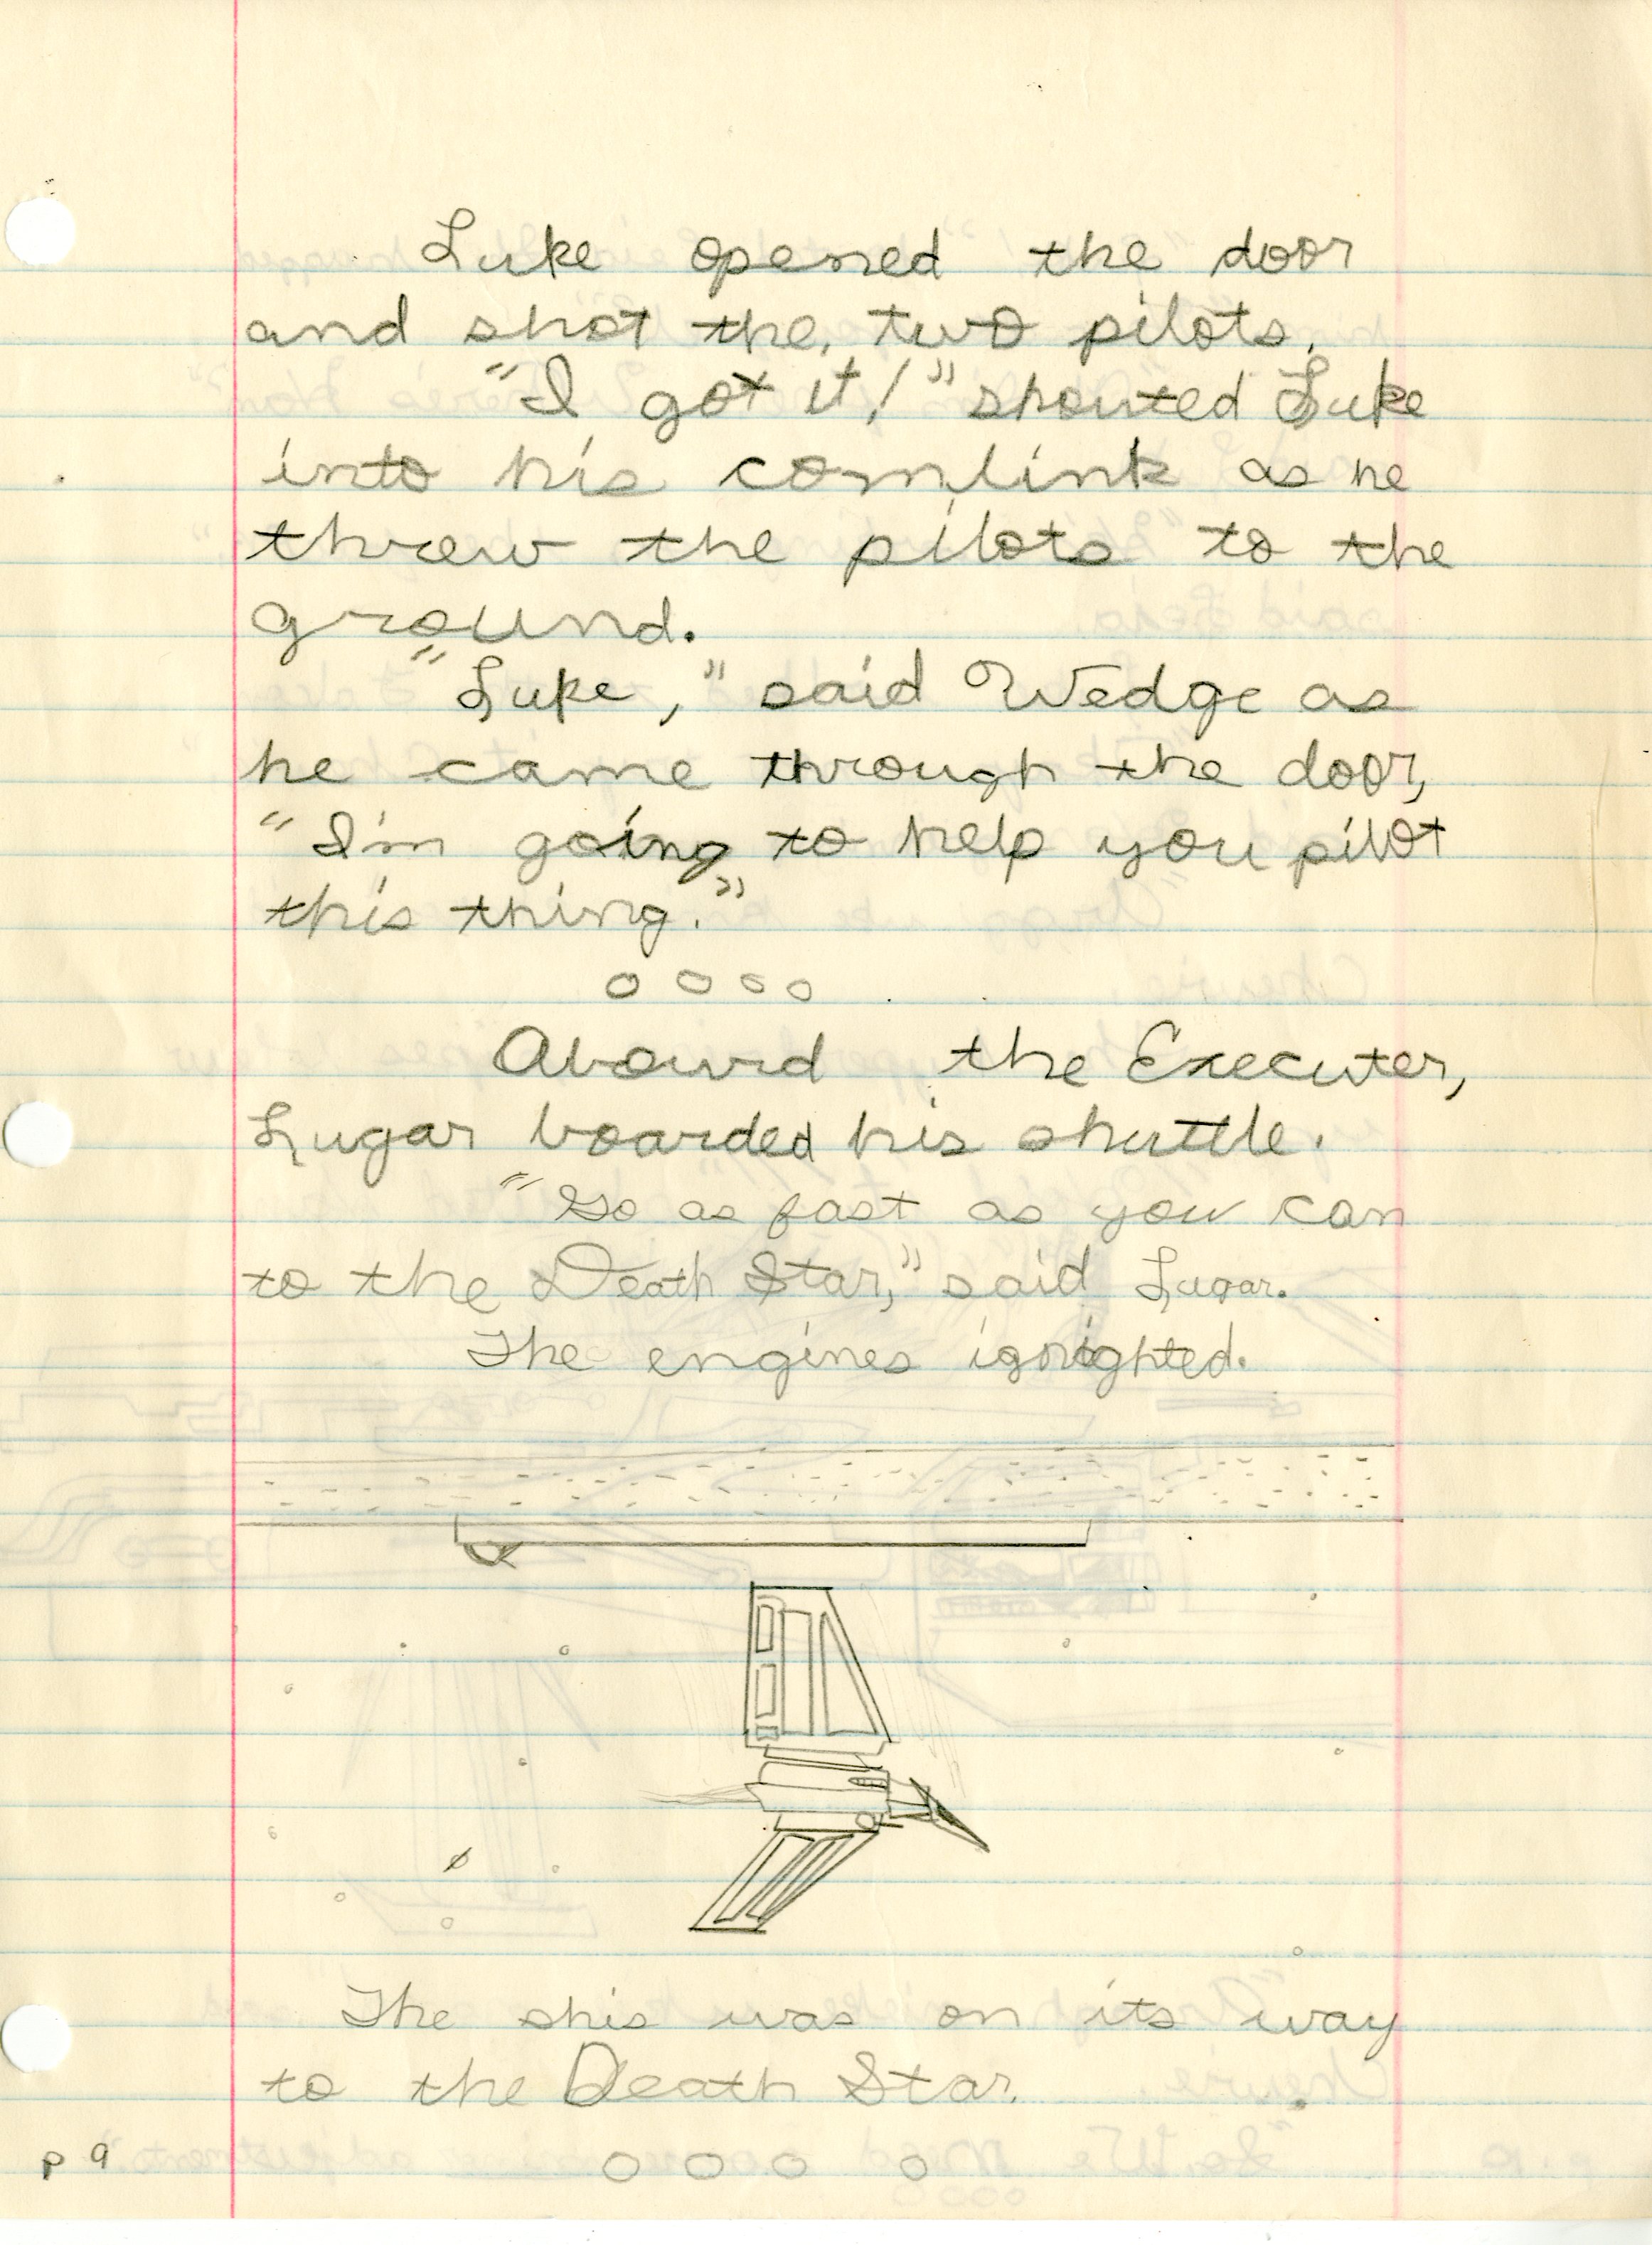 Luke opened the door
and shot the, two pilots.
"I got it!" shouted Luke
into his comlink as he
threw the pilots to the
ground.
"Luke," said Wedge as
he came through the door,
"I'm going to help you pilot
this thing."
o o o o
Abourd the Executer,
Lugar boarded his shuttle.
"Go as fast as you can
to the Death Star," said Lugar.
The engines ignighted.
The shis was on its way
to the Death Star.
p 9
o o o o